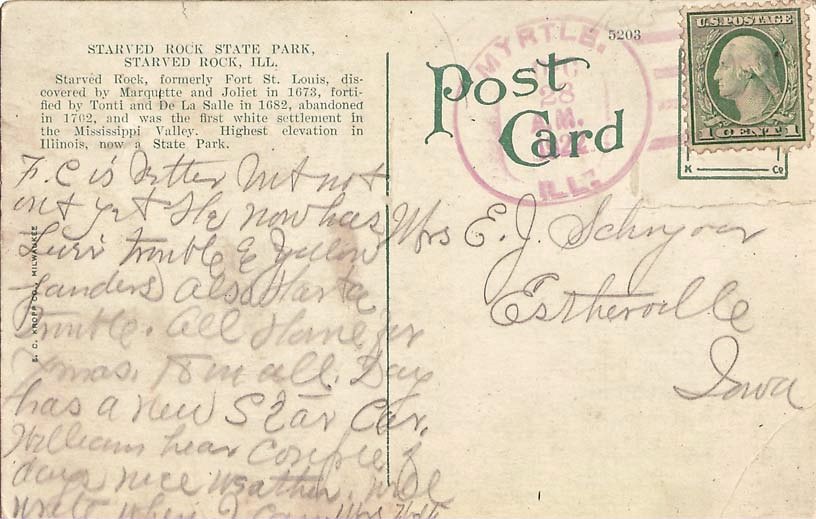 STARVED ROCK STATE PARK,
STARVED ROCK, ILL.
Starved Rock, formerly Fort St. Louis, dis-
covered by Marquette and Joliet in 1673, forti-
fied by Tonti and De La Salle in 1682, abandoned
in 1702, and was the first white settlement in
the Mississippi Valley. Highest elevation in
Illinois, now a State Park.
F. C is better but not
out yet He now has
Liver trouble &
also
trouble. All Home for
Xmas. 18 in all. Day
has a new Star Car.
William hear couple of
days nice weather. will
write when I can
E. C. KROPP CO., MILWAUKEE
Post
Card
5203
MYRTLE.
28
M.
1922
ILL.
U.S. POSTAGE
1 CENT 1
K Co
Mrs E. J. Schryver
Estherville
Iowa